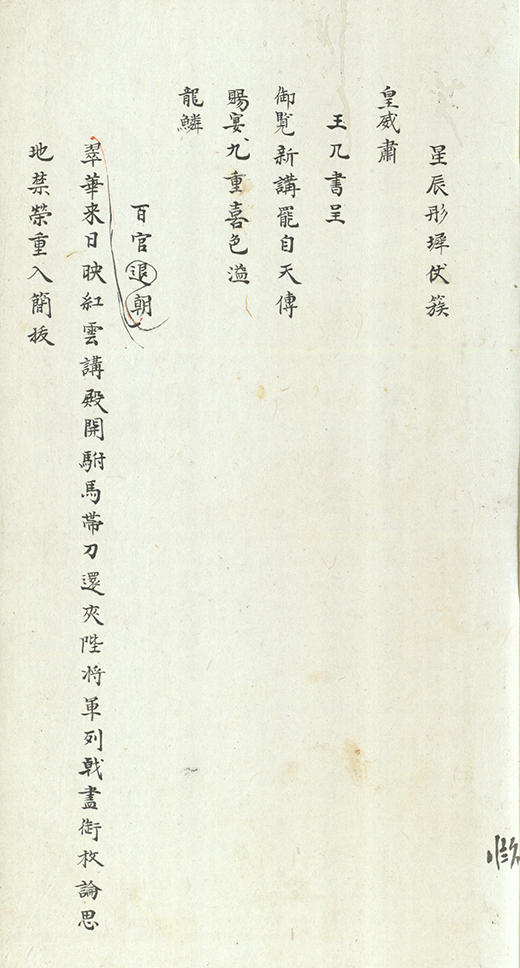 星辰彤墀仗簇
皇威肅
玉几書呈
御覧新講罷自天傳
賜宴九重喜色溢
龍鱗
百官退朝
翠華来日映紅雲講殿開駙馬帶刀還夾陛将軍列戟盡銜枚論思
地禁榮重入簡拔